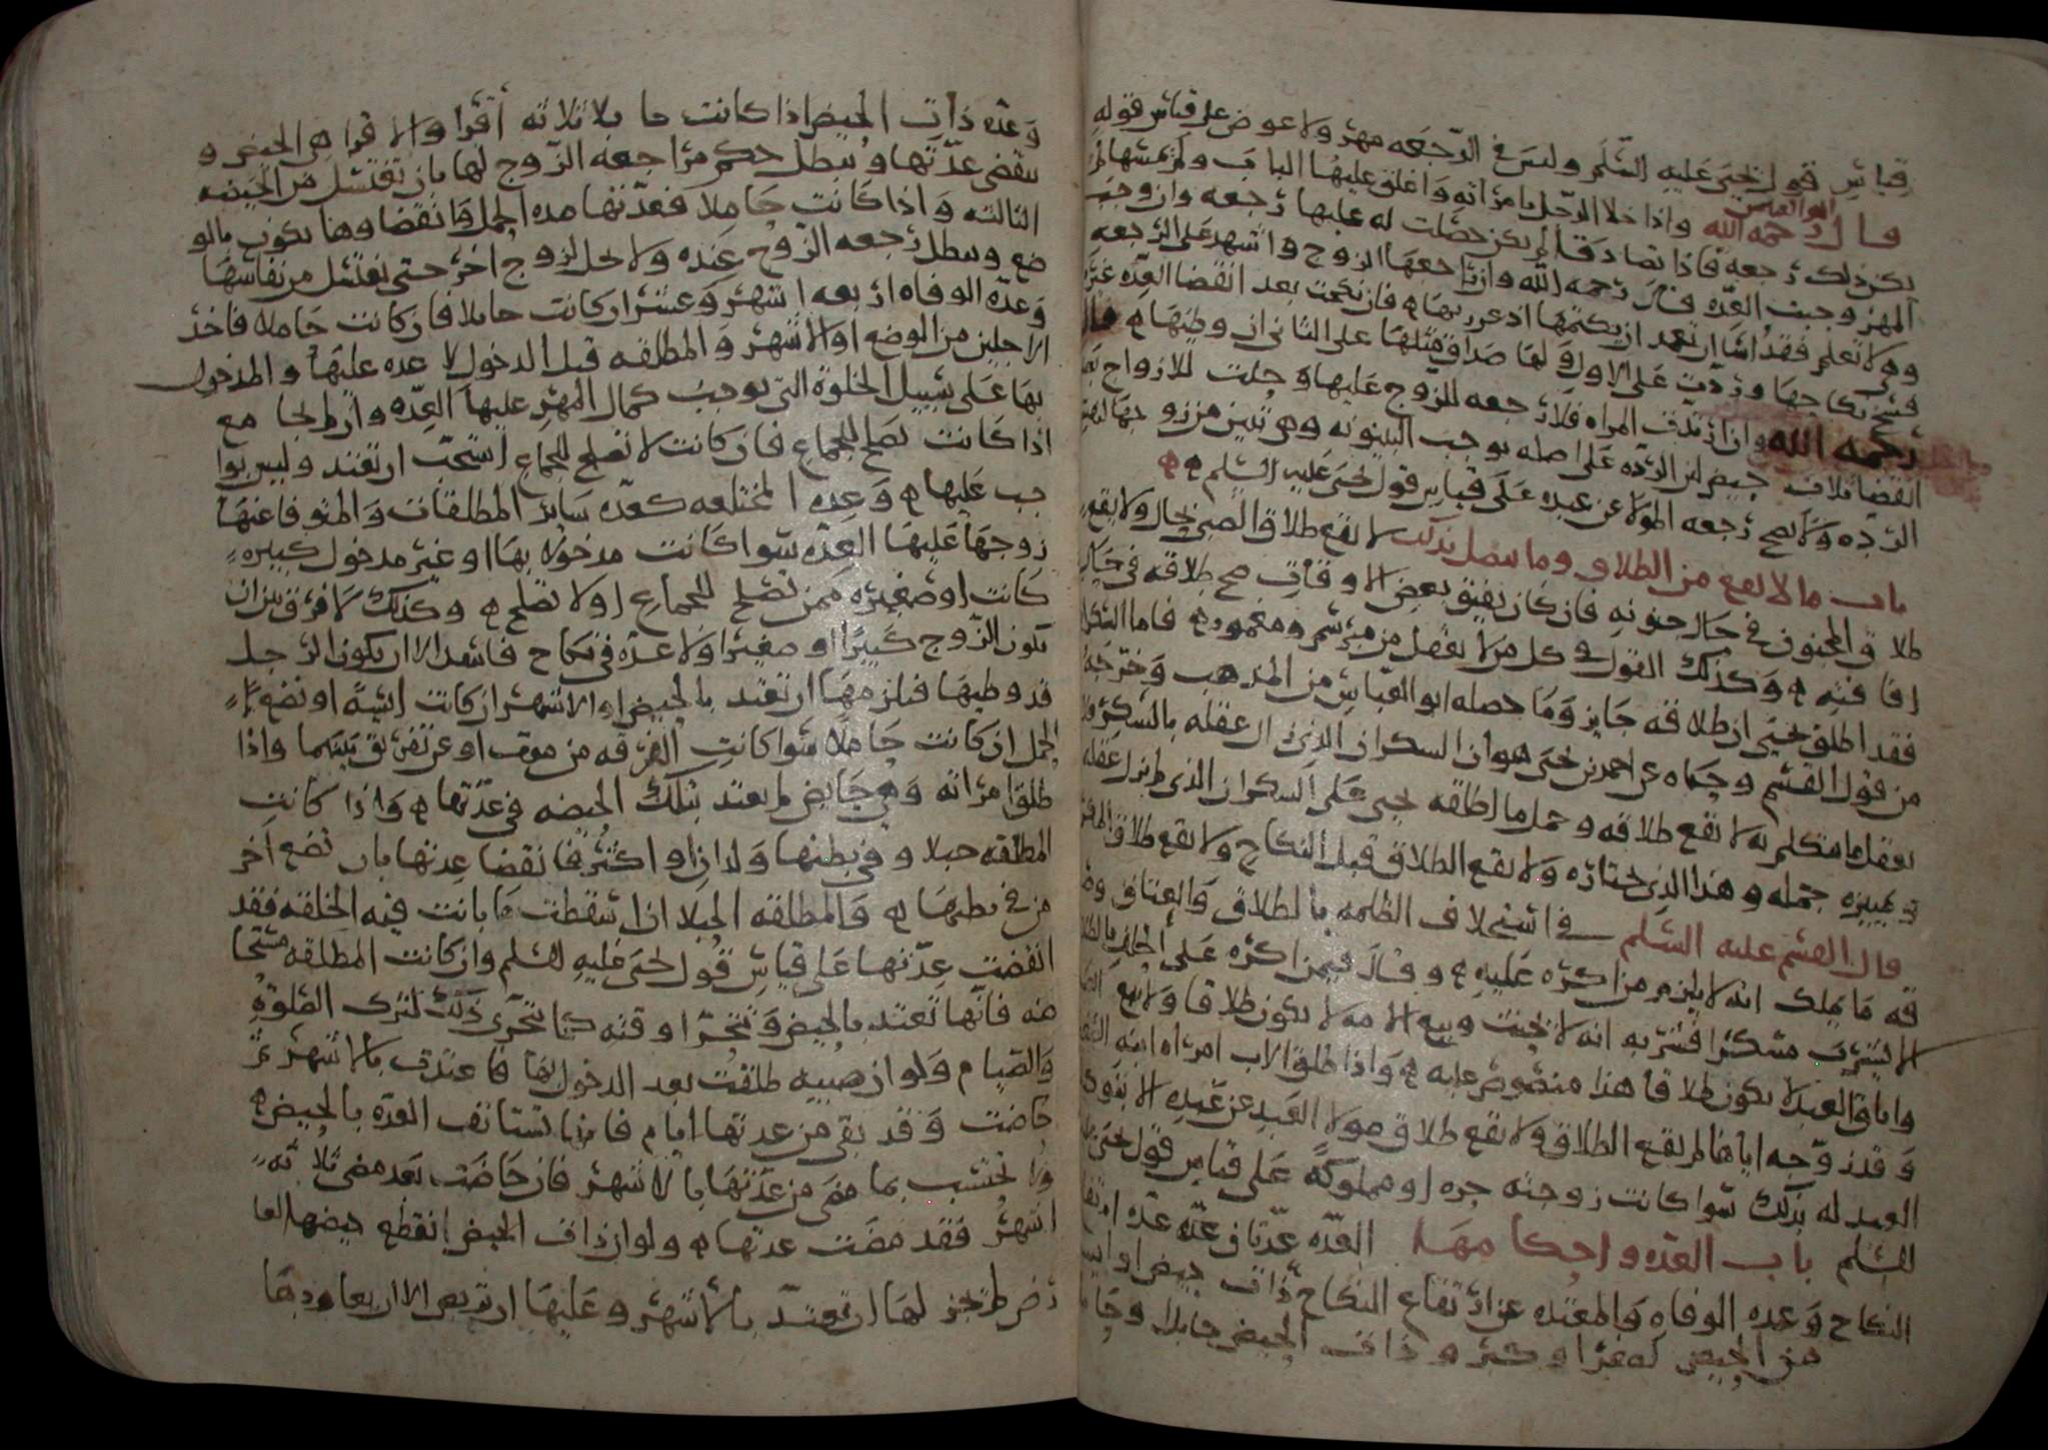 قياس قول يحيى عليه السلم وليس في الرجعه مهر ولا عوض على قياس قوله
قال ابو العباس رحمه الله واذا خلا الرجل بامرأته واغلق عليها الباب ولم يمسها لم
يكن ذلك رجعه فاذا تصادقا لم يكن حصلت له عليها رجعه وان وجب
المهر وجبت العده قال رحمه الله وان راجعها الزوج واشهد على الرجعه
وهي لا تعلم فقد اسا ان تعمد ان يكتمها فان نكحت بعد انقضا العده غيره
فسخ نكاحها وردت على الاول ولها صداق مثلها على الثاني ان وطيها قال
رحمه الله وان ارتدت المراه فلا رجعه للزوج عليها وحلت للازواج بعد
انقضا ثلاث حيض لان الرده على اصله توجب البينونه وهي تبين من زوجها لنفس
الرده ولا تصح رجعه المولا عن عبده على قياس قول يحيى عليه السلم
باب ما لا يقع من الطلاق وما يتصل بذلك لا يقع طلاق الصبي بحال ولا يقع
طلاق المجنون في حال جنونه فان كان يفيق بعض الاوقات صح طلاقه في حال
افاقته وكذلك القول في كل من لا يعقل من مبرسم ومغمور فاما السكران
فقد اطلق يحيى ان طلاقه جايز وما حصله ابو العباس من المذهب وخرجه
من قول القسم وحكاه عن احمد بن يحيى هو ان السكران الذي زال عقله بالسكر فلا
يعقل ما تكلم به لا يقع طلاقه وحمل ما اطلقه يحيى على السكران الذي لم يزل عقله
وتمييزه جمله وهذا الذي نختاره ولا يقع الطلاق قبل النكاح ولا يقع طلاق المكره
قال القسم عليه السلم في استحلاف الظلمه بالطلاق والعتاق وصد
قه ما يملك انه لا يلزم من اكره عليه وقال فيمن اكره على الحلف بالطلاق
لا يشرب مسكرا فشربه انه لا يحنث وبيع الامه لا يكون طلاقا ولا بيع العبد
واباق العبد لا يكون طلاقا هذا منصوص عليه واذا طلق الاب امراه ابنه الصغير
وقد زوجه اياها لم يقع الطلاق ولا يقع طلاق مولا العبد عن عبده الا بتوكيل
العبد له بذلك سوا كانت زوجته حره او مملوكه على قياس قول يحيى عليه
السلم باب العده واحكامها العده عدتان عده عن ارتفاع
النكاح وعده الوفاه والمعتده عن ارتفاع النكاح ذات حيض او ايسه
من الحيض لصغر او كبر وذات الحيض حايل وحامل
وعده ذات الحيض اذا كانت حايلا ثلاثه أقرا والاقرا هي الحيض و
تنقضي عدتها ويبطل حكم مراجعه الزوج لها بان تغتسل من الحيضه
الثالثه واذا كانت حاملا فعدتها مده الحمل وانقضاوها يكون بالو
ضع ويبطل رجعه الزوج عنده ولا تحل لزوج اخر حتى تغتسل من نفاسها
وعده الوفاه اربعه اشهر وعشرا ان كانت حايلا فان كانت حاملا فاخر
الاجلين من الوضع او الاشهر والمطلقه قبل الدخول لا عده عليها والمدخول
بها على سبيل الخلوة التي توجب كمال المهر عليها العده وان لم يجامع
اذا كانت تصلح للجماع فان كانت لا تصلح للجماع استحب ان تعتد وليس بوا
جب عليها وعده المختلعه كعده ساير المطلقات والمتوفا عنها
زوجها عليها العده سوا كانت مدخولا بها او غير مدخول كبيره
كانت او صغيره ممن تصلح للجماع او لا تصلح وكذلك لا فرق بين ان
يكون الزوج كبيرا او صغيرا ولا عده في نكاح فاسد الا ان يكون الرجل
قد وطيها فيلزمها ان تعتد بالحيض او الاشهر ان كانت ايسة او تضع
الحمل ان كانت حاملا سوا كانت الفرقه من موت او عن تفريق بينهما واذا
طلق امراته وهي حايض لم يعتد بتلك الحيضه في عدتها واذا كانت
المطلقه حبلا وفي بطنها ولدان او اكثر فانقضا عدتها بان تضع اخر
من في بطنها والمطلقه الحبلا اذا اسقطت ما بانت فيه الخلقه فقد
انقضت عدتها على قياس قول يحيى عليه السلم وان كانت المطلقه مستحا
ضه فانها تعتد بالحيض وتتحرا وقته كما تتحرى ذلك لترك الصلوة
والصيام ولو ان صبيه طلقت بعد الدخول بها فاعتدت بالاشهر ثم
حاضت وقد بقي من عدتها ايام فانها تستانف العده بالحيض
ولا تحتسب بما مضى من عدتها بالاشهر فان حاضت بعد مضي ثلاثه
اشهر فقد مضت عدتها ولو ان ذات الحيض انقطع حيضها لعا
رض لم يجز لها ان تعتد بالاشهر وعليها ان تتربص الا ان يعاودها